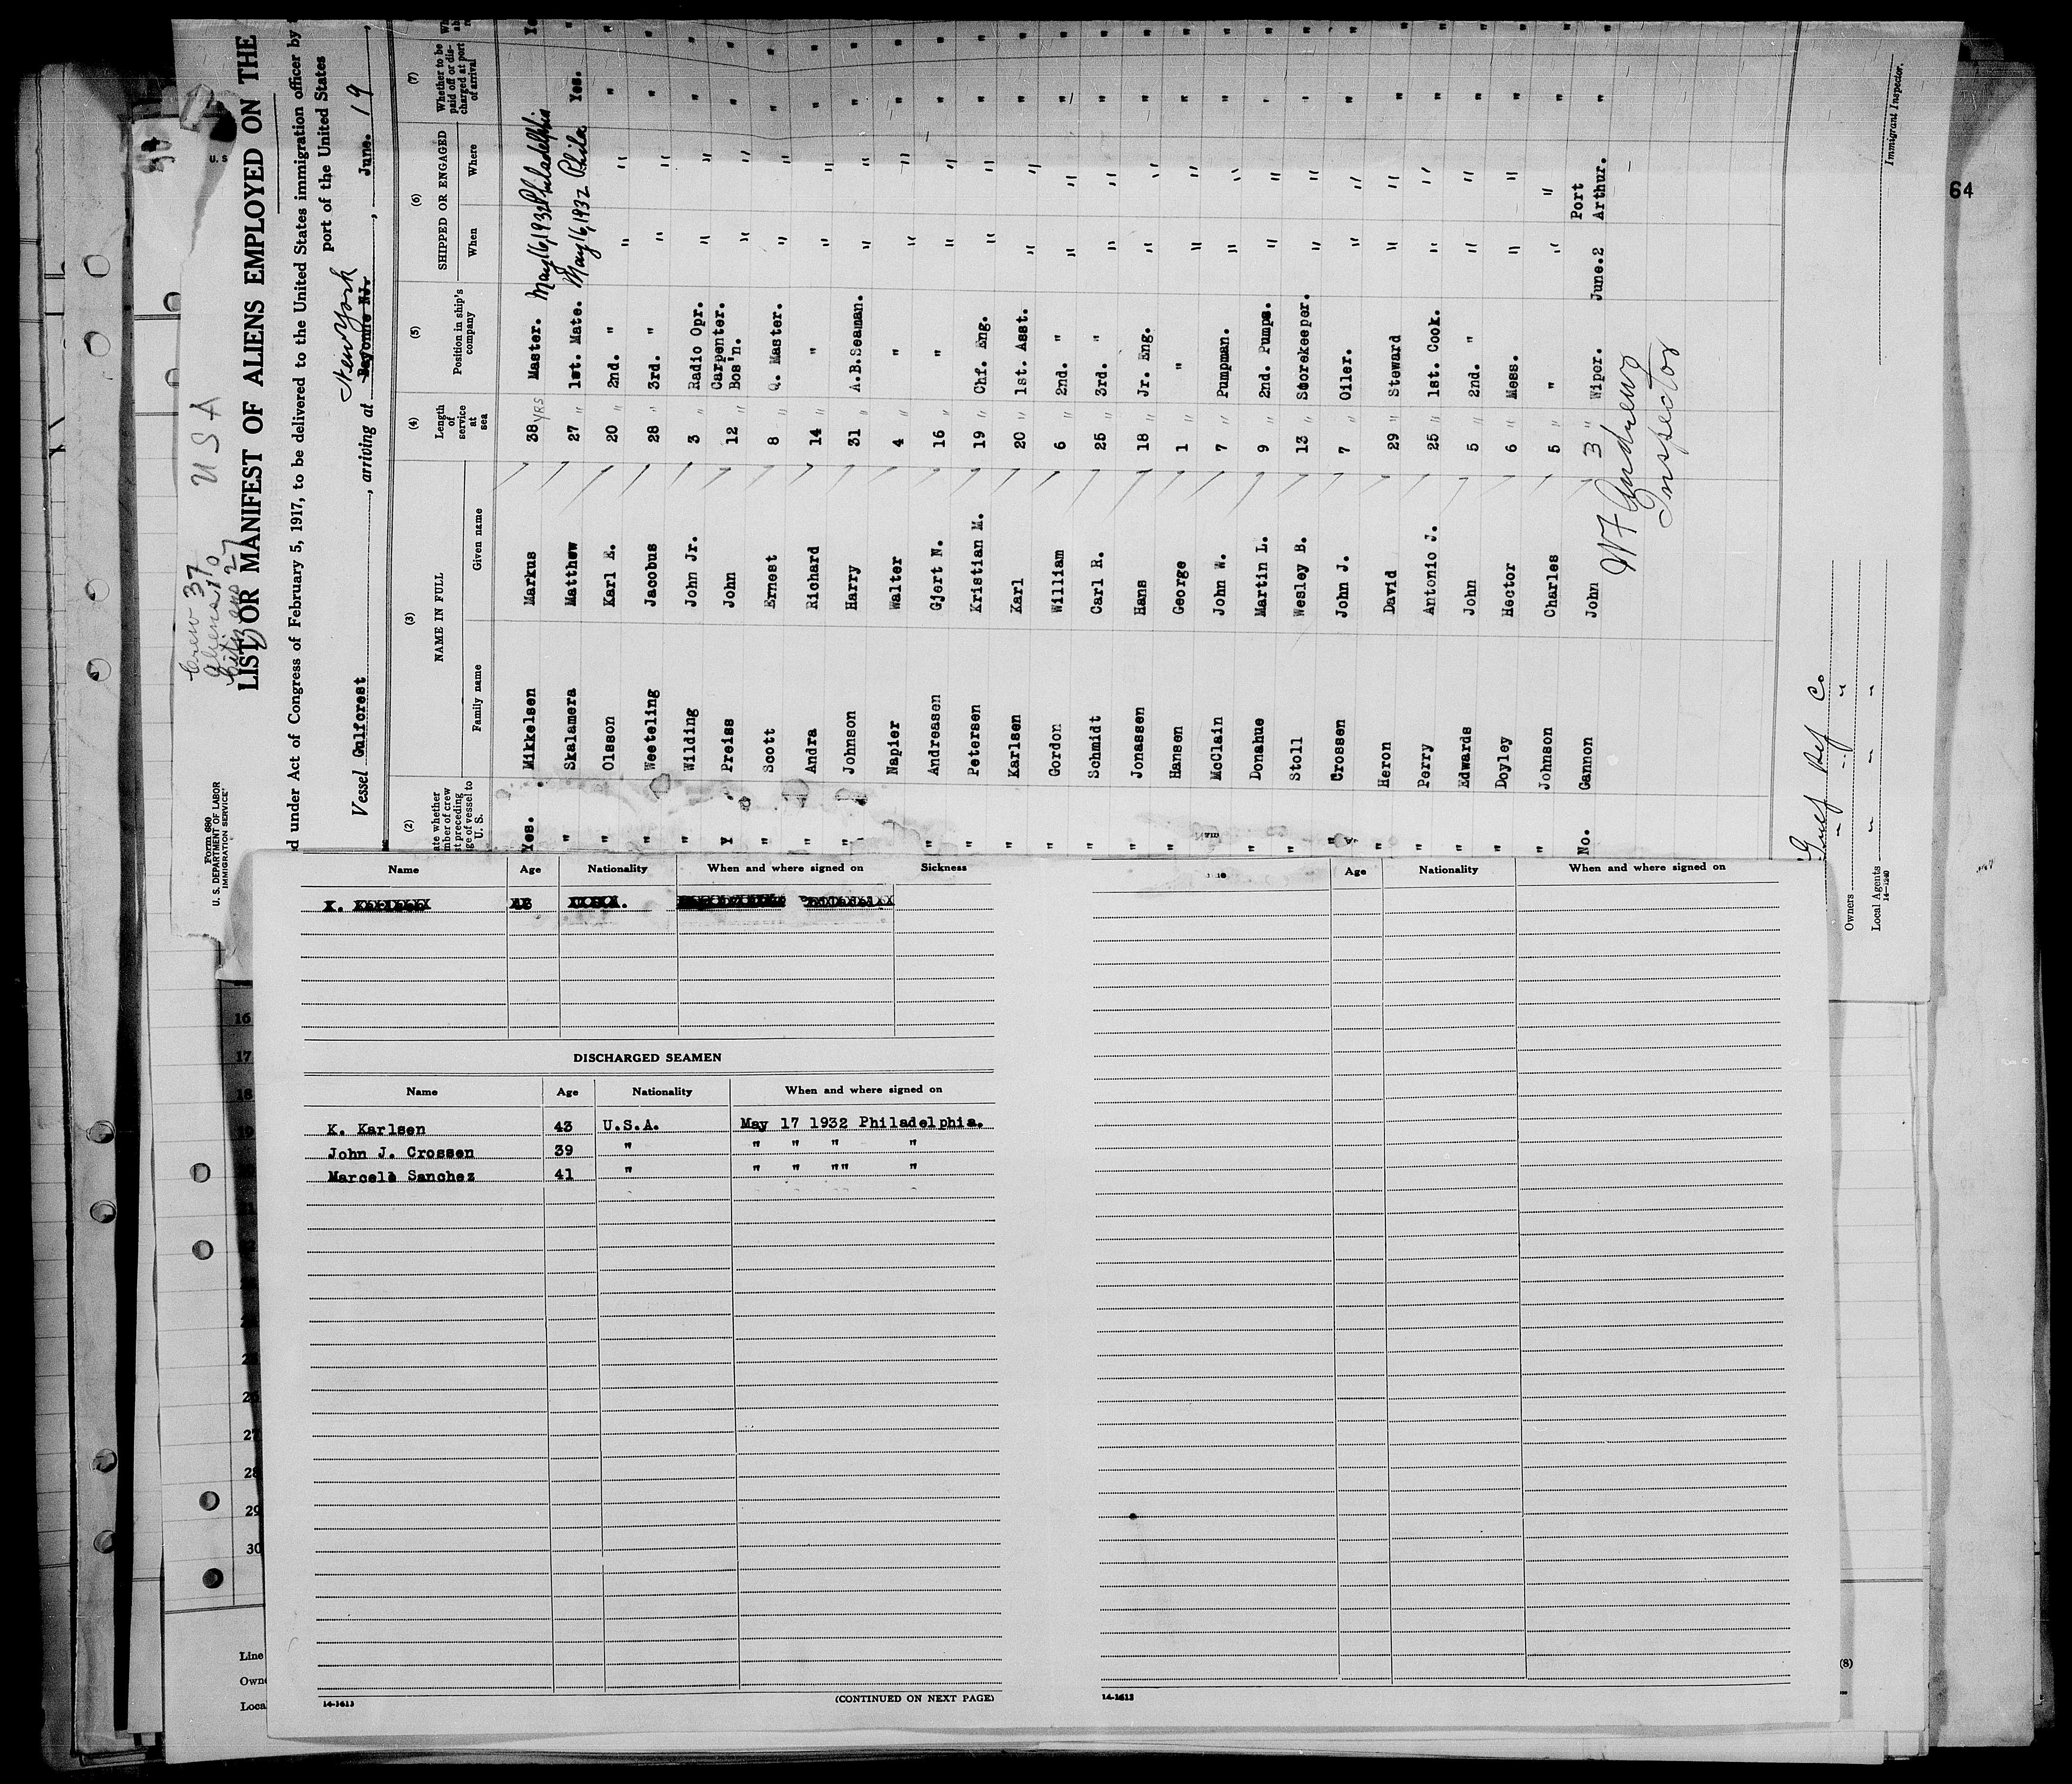 Form 680
U. S. DEPARTMENT OF LABOR
IMMIGRATION SERVICE
U S
Crew 37
Aliens 10
Citizens 27
U S A
LIST OR MANIFEST OF ALIENS EMPLOYED ON THE
d under Act of Congress of February 5, 1917, to be delivered to the United States immigration officer by
port of the United States
Vessel Gulforest, arriving at Bayonne NJ. New York, June. 19,
(2) (3) (4) (5) (6) (7)
ate whether
mber of crew
t preceding
ge of vessel to
U. S.
NAME IN FULL
Family name Given name
Length of service at sea
Position in ship's company
SHIPPED OR ENGAGED
When Where
Whether to be paid off or discharged at port of arrival
Yes. Mikkelsen Markus 38 YRS Master. May 16, 1932 Philadelphia
" Skalamera Matthew 27 " 1st. Mate. May 16, 1932 Phila. Yes.
" Olsson Karl E. 20 " 2nd. " " " "
" Weeteling Jacobus 28 " 3rd. " " " "
" Wilding John Jr. 3 " Radio Opr. " " "
Y Preiss John 12 " Carpenter. Bos'n. " " "
" Scott Ernest 8 " Q. Master. " " "
" Andra Richard 14 " " " " "
" Johnson Harry 31 " A.B.Seaman. " " "
Napier Walter 4 " " " " "
" Andreasen Gjert N. 16 " " " " "
" Petersen Kristian M. 19 " Chf. Eng. " " "
" Karlsen Karl 20 " 1st. Asst. " " "
" Gordon William 6 " 2nd. " " " "
" Schmidt Carl R. 25 " 3rd. " " " "
" Jonassen Hans 18 " Jr. Eng. " " "
" Hansen George 1 " " " " "
McClain John W. 7 " Pumpman. " " "
" Donahue Martin L. 9 " 2nd. Pumps. " " "
" Stoll Wesley B. 13 " Storekeeper. " " "
" Crossen John J. 7 " Oiler. " " "
" Heron David 29 " Steward " " "
" Perry Antonio J. 25 " 1st. Cook. " " "
" Edwards John 5 " 2nd. " " " "
" Doyley Hector 6 " Mess. " " "
" Johnson Charles 5 " " " " "
No. Gannon John 3 " Wiper. June.2 Port Arthur. "
W F Andrews
Inspector
Gulf Ref Co
Owners " " "
Local Agents " " "
14-1240
Immigrant Inspector.
64
Name Age Nationality When and where signed on Sickness
DISCHARGED SEAMEN
Name Age Nationality When and where signed on
K. Karlsen 43 U.S.A. May 17 1932 Philadelphia.
John J. Crossen 39 " " " " "
Marcelo Sanchez 41 " " " "" "
14-1613 (CONTINUED ON NEXT PAGE)
Age Nationality When and where signed on
14-1613
16
17
18
19
26
27
28
29
30
Line
Owne
Loca
(8)